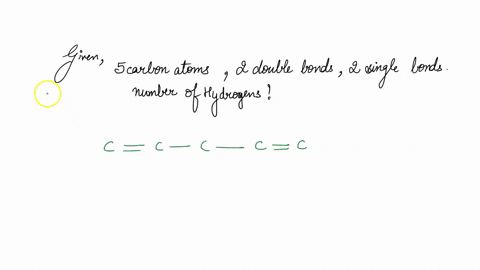 Given, 5 carbon atoms , 2 double bonds , 2 single bonds.
number of Hydrogens ?
C = C — C — C = C